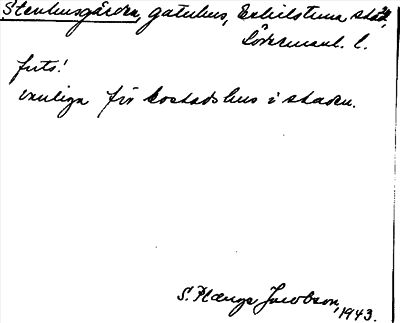 Stenhusgården, gatuhus, Eskilstuna stad,
Södermanl. l.
fritts!
vanliga för bostadshus i staden.
S. Hænge Jacobson, 1943.